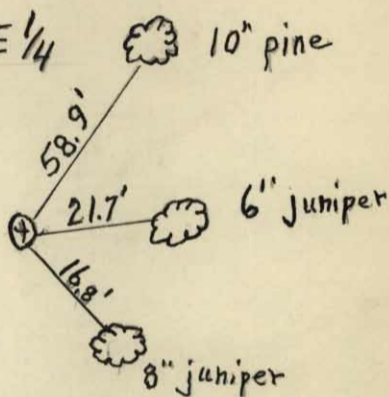 E 1/4
10" pine
58.9'
21.7'
6" juniper
16.8'
8" juniper